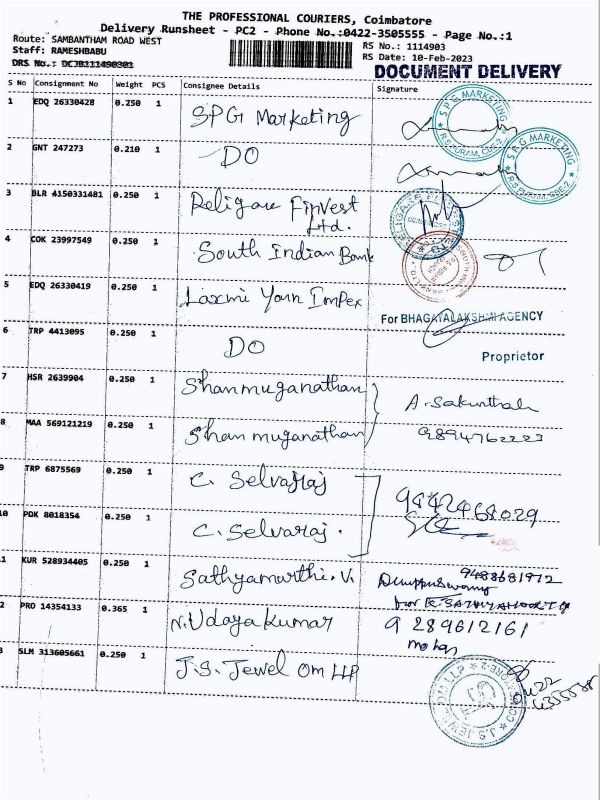 THE PROFESSIONAL COURIERS, Coimbatore
Delivery Runsheet - PC2 - Phone No.:0422-3505555 - Page No.:1
Route: SAMBANTHAM ROAD WEST RS No.: 1114903
Staff: RAMESHBABU RS Date: 10-Feb-2023
DRS No.:
DOCUMENT DELIVERY
S No Consignment No Weight PCS Consignee Details Signature
1 EDQ 26330428 0.250 1 SPG Marketing
SPG MARKETING
R S PURAM, CBE-2
2 GNT 247273 0.210 1 DO
SPG MARKETING
R S PURAM, CBE-2
3 BLR 4150331481 0.250 1 Religare Finvest
Ltd.
4 COK 23997549 0.250 1 South Indian Bank
5 EDQ 26330419 0.250 1 Laxmi Yarn Impex
For BHAGAYALAKSHMI AGENCY
6 TRP 4413095 0.250 1 DO
Proprietor
7 HSR 2639904 0.250 1 Shanmuganathan
A. Sakunthala
8 MAA 569121219 0.250 1 Shanmuganathan
9 TRP 6875569 0.250 1 C. Selvaraj
9842468029
10 PDK 8018354 0.250 1 C. Selvaraj.
11 KUR 528934405 0.250 1 Sathyamurthi.V.
9488681972
2 PRO 14354133 0.365 1 N. Udayakumar
9289612161
mohan
3 SLM 313605661 0.250 1 J.S. Jewel Om LLP
0422